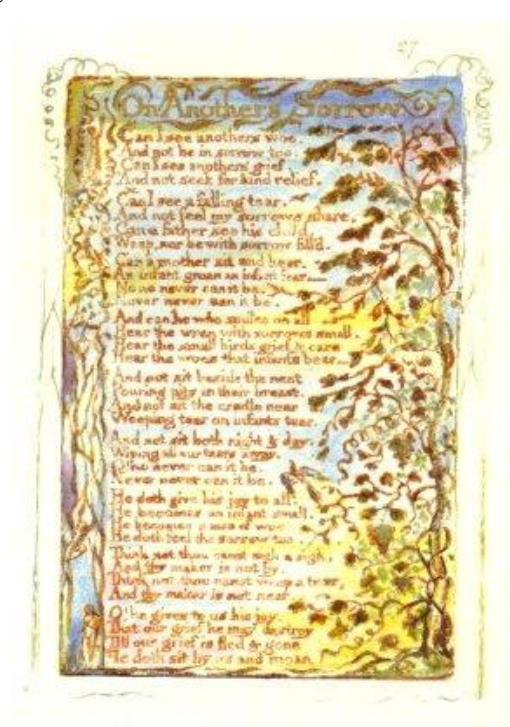 27
On Anothers Sorrow
Can I see anothers woe,
And not be in sorrow too.
Can I see anothers grief,
And not seek for kind relief.
Can I see a falling tear.
And not feel my sorrows share,
Can a father see his child,
Weep, nor be with sorrow fill'd.
Can a mother sit and hear,
An infant groan an infant fear—
No no never can it be.
Never never can it be.
And can he who smiles on all
Hear the wren with sorrows small.
Hear the small birds grief & care
Hear the woes that infants bear—
And not sit beside the nest
Pouring pity in their breast.
And not sit the cradle near
Weeping tear on infants tear.
And not sit both night & day.
Wiping all our tears away.
O! no never can it be.
Never never can it be.
He doth give his joy to all.
He becomes an infant small.
He becomes a man of woe
He doth feel the sorrow too.
Think not thou canst sigh a sigh,
And thy maker is not by.
Think not thou canst weep a tear,
And thy maker is not near.
O! he gives to us his joy.
That our grief he may destroy
Till our grief is fled & gone
He doth sit by us and moan